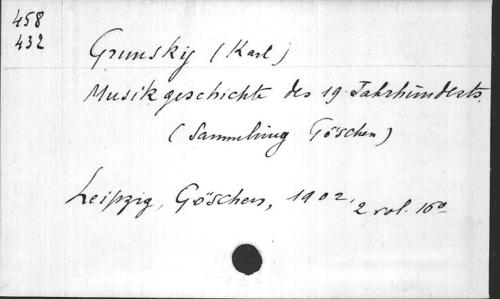 458
432
Grunsky (Karl)
Musikgeschichte des 19. Jahrhunderts.
(Sammlung Göschen)
Leipzig, Göschen, 1902, 2 vol. 16º